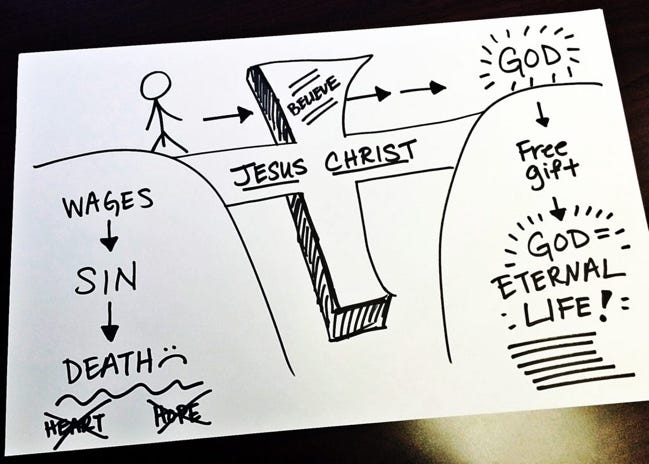 GOD
BELIEVE
JESUS CHRIST
WAGES
SIN
DEATH
HEART HOPE
Free
gift
GOD
ETERNAL
LIFE!